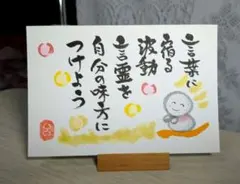 言葉に
宿る
波動
言霊を
自分の味方に
つけよう